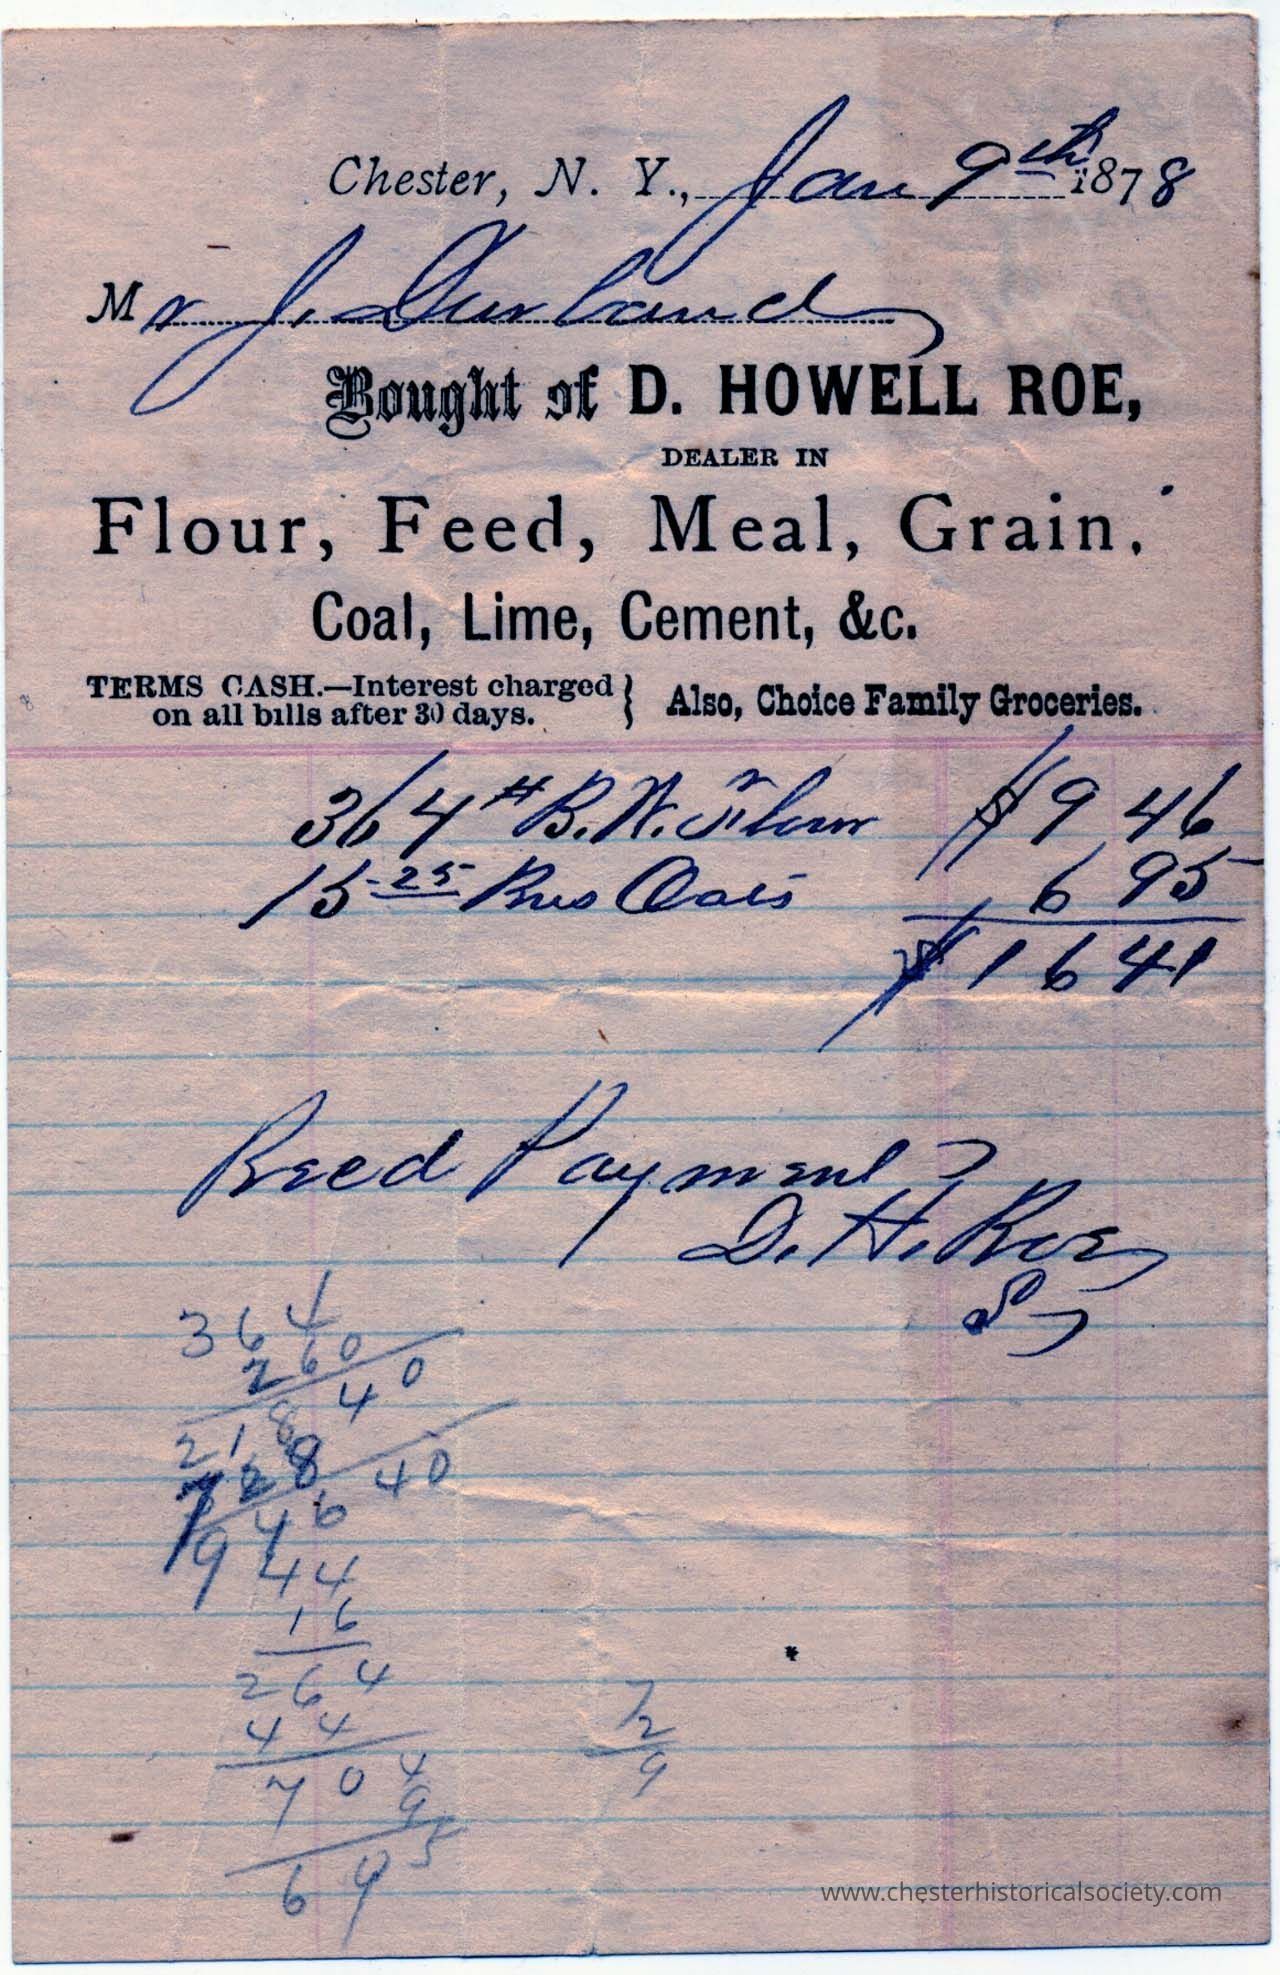 Chester, N. Y., Jan 9th 1878
Mr J. Durland
Bought of D. HOWELL ROE,
DEALER IN
Flour, Feed, Meal, Grain,
Coal, Lime, Cement, &c.
TERMS CASH.—Interest charged
on all bills after 30 days.
Also, Choice Family Groceries.
364 # B.W. Flour $9 46
15-25 Bus Oats 6 95
$16 41
Recd Payment
D. H. Roe
364
260
2184 0
728
946 40
44
16
264
44
704
9
695
7
2
9
www.chesterhistoricalsociety.com